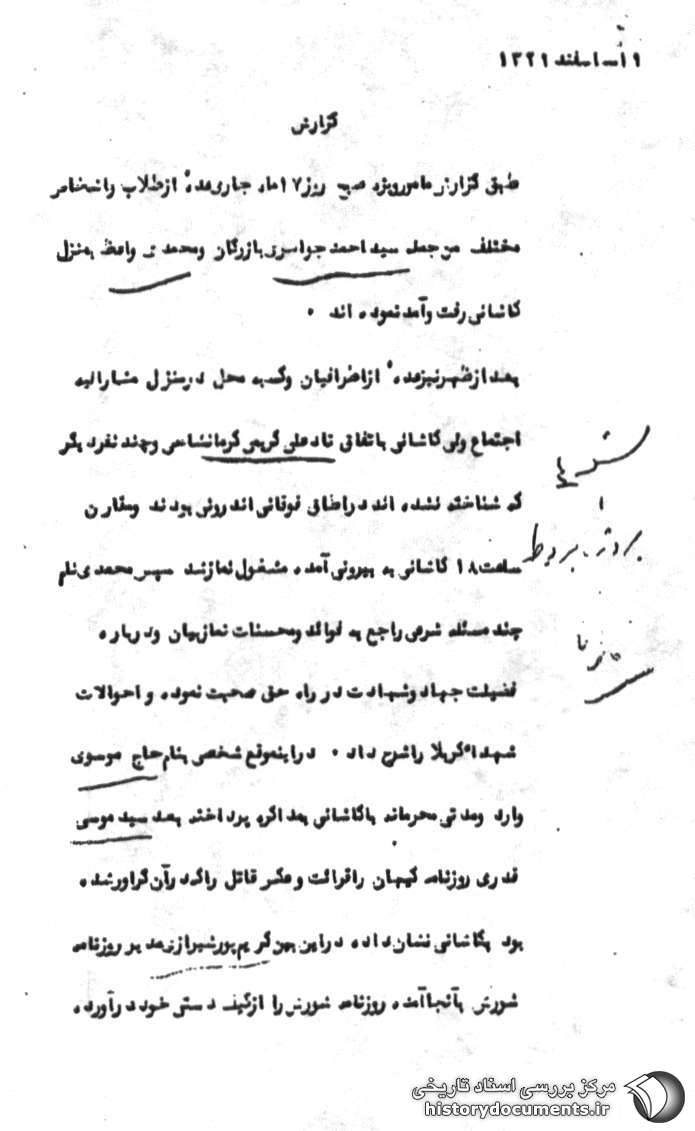 ۱۹ـ اسفند ۱۳۲۹
گزارش
طبق گزارش مامورویژه صبح روز ۱۷ ماه جاری عده ازطلاب واشخاص
مختلف من جمله سید احمد جواسری بازرگان ومحمدی واعظ بمنزل
کاشانی رفت وآمد نموده اند ۰
بعد ازظهر نیز عده ازاطرافیان وکسبه محل درمنزل مشارالیه
اجتماع ولی کاشانی باتفاق نادعلی کریمی کرمانشاهی وچند نفر دیگر
که شناخته نشده اند دراطاق فوقانی اندرونی بودند ومقارن
ساعت ۱۸ کاشانی به بیرونی آمده مشغول نماز شد سپس محمدی نام
چند مسئله شرعی راجع به فوائد ومحسنات نماز بیان ودرباره
فضیلت جهاد وشهادت در راه حق صحبت نموده و احوالات
شهداء کربلا راشرح داد ۰ دراینموقع شخصی بنام حاج موسوی
وارد ومدتی محرمانه باکاشانی بمذاکره پرداخته بعد سید موسی
قدری روزنامه کیهان راقرائت وعکس قاتل راکه درآن گراور شده
بود بکاشانی نشان داده دراین بین کریم پور شیرازی مدیر روزنامه
شورش بآنجا آمده روزنامه شورش را ازکیف دستی خود درآورده
مرکز بررسی اسناد تاریخی
historydocuments.ir